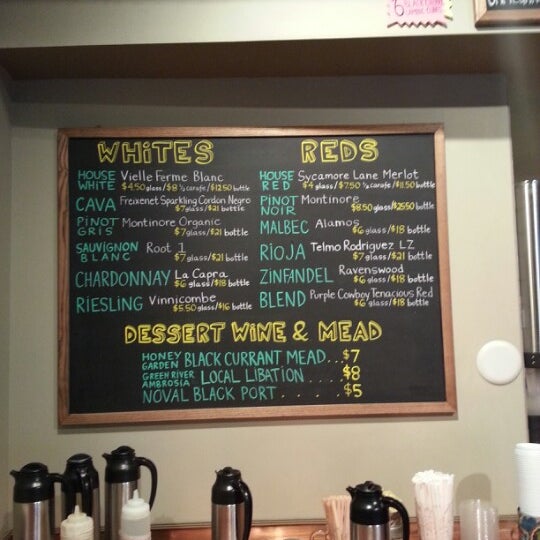 WHITES
HOUSE WHITE Vielle Ferme Blanc
$4.50 glass/$8 ½ carafe/$12.50 bottle
CAVA Freixenet Sparkling Cordon Negro
$7 glass/$21 bottle
PINOT GRIS Montinore Organic
$7 glass/$21 bottle
SAUVIGNON BLANC Root 1
$7 glass/$21 bottle
CHARDONNAY La Capra
$6 glass/$18 bottle
RIESLING Vinnicombe
$5.50 glass/$16 bottle
REDS
HOUSE RED Sycamore Lane Merlot
$4 glass/$7.50 ½ carafe/$11.50 bottle
PINOT NOIR Montinore
$8.50 glass/$25.50 bottle
MALBEC Alamos
$6 glass/$18 bottle
RIOJA Telmo Rodriguez LZ
$7 glass/$21 bottle
ZINFANDEL Ravenswood
$6 glass/$18 bottle
BLEND Purple Cowboy Tenacious Red
$6 glass/$18 bottle
DESSERT WINE & MEAD
HONEY GARDEN BLACK CURRANT MEAD...$7
GREEN RIVER AMBROSIA LOCAL LIBATION ....$8
NOVAL BLACK PORT . . . . .$5
6